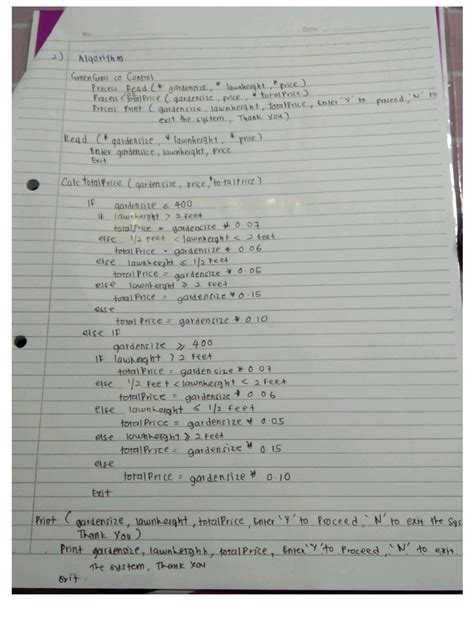 No:
Date:
2) Algorithm
GreenGrass co Control
Process Read (* gardensize, * lawnheight, * price)
Process TotalPrice (gardensize, price, * totalPrice)
Process Print (gardensize, lawnheight, totalPrice, Enter 'Y' to proceed, 'N' to
exit the system, Thank You)
Read (* gardensize, * lawnheight, * price)
Enter gardensize, lawnheight, Price
Exit
Calc TotalPrice (gardensize, price, *totalPrice)
IF gardensize ≤ 400
if lawnheight > 2 feet
totalPrice = gardensize * 0.07
else 1/2 feet < lawnheight < 2 feet
totalPrice = gardensize * 0.06
else lawnheight ≤ 1/2 feet
totalPrice = gardensize * 0.05
else lawnheight ≥ 2 feet
totalPrice = gardensize * 0.15
else
totalPrice = gardensize * 0.10
else IF
gardensize ≥ 400
IF lawnheight > 2 Feet
totalPrice = gardensize * 0.07
else 1/2 Feet < lawnheight < 2 Feet
totalPrice = gardensize * 0.06
else lawnheight ≤ 1/2 feet
totalPrice = gardensize * 0.05
else lawnheight ≥ 2 Feet
totalPrice = gardensize * 0.15
else
totalPrice = gardensize * 0.10
Exit
Print (gardensize, lawnheight, totalPrice, Enter 'Y' to Proceed, 'N' to exit the Sys
Thank You)
Print gardensize, lawnheight, totalPrice, Enter 'Y' to Proceed, 'N' to exit
The system, Thank You
Exit.